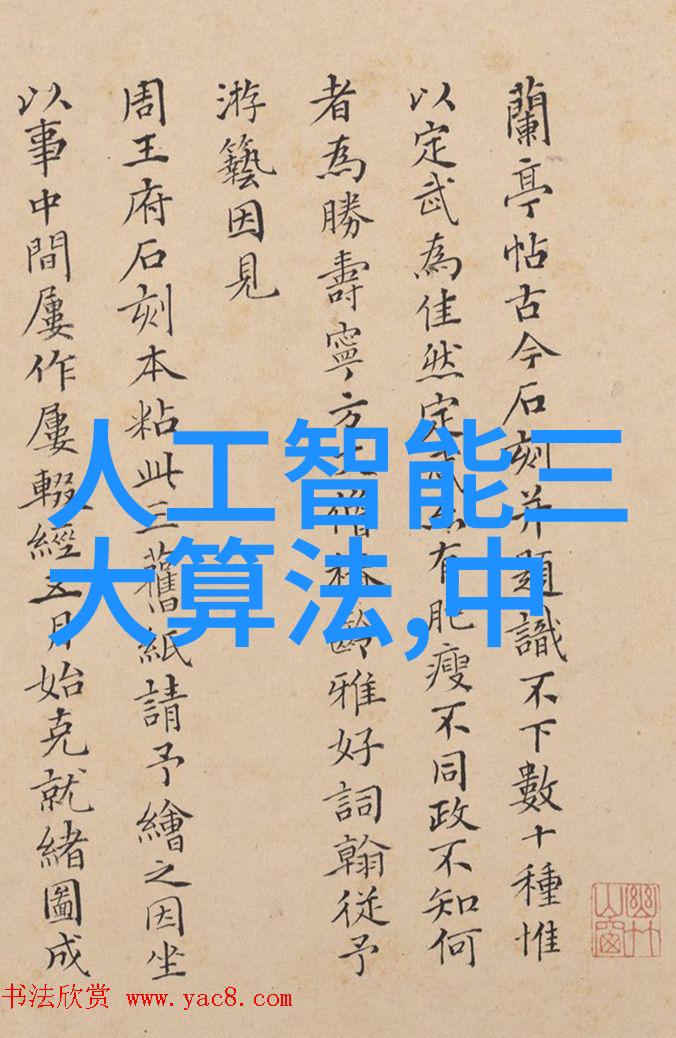 蘭亭帖古今石刻并題識不下數十種惟
以定武為佳然定武亦有肥瘦不同政不知何
者為勝壽寧方丈僧齡雅好詞翰從予
游藝因見
周王府石刻本粘此三舊紙請予繪之因坐
以事中間屢作屢輟經五月始克就緒圖成
人工智能三
大算法,中
幽竹山窗
书法欣赏 www.yac8.com